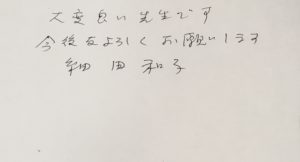 大変良い先生です
今後もよろしくお願いします
細田和子